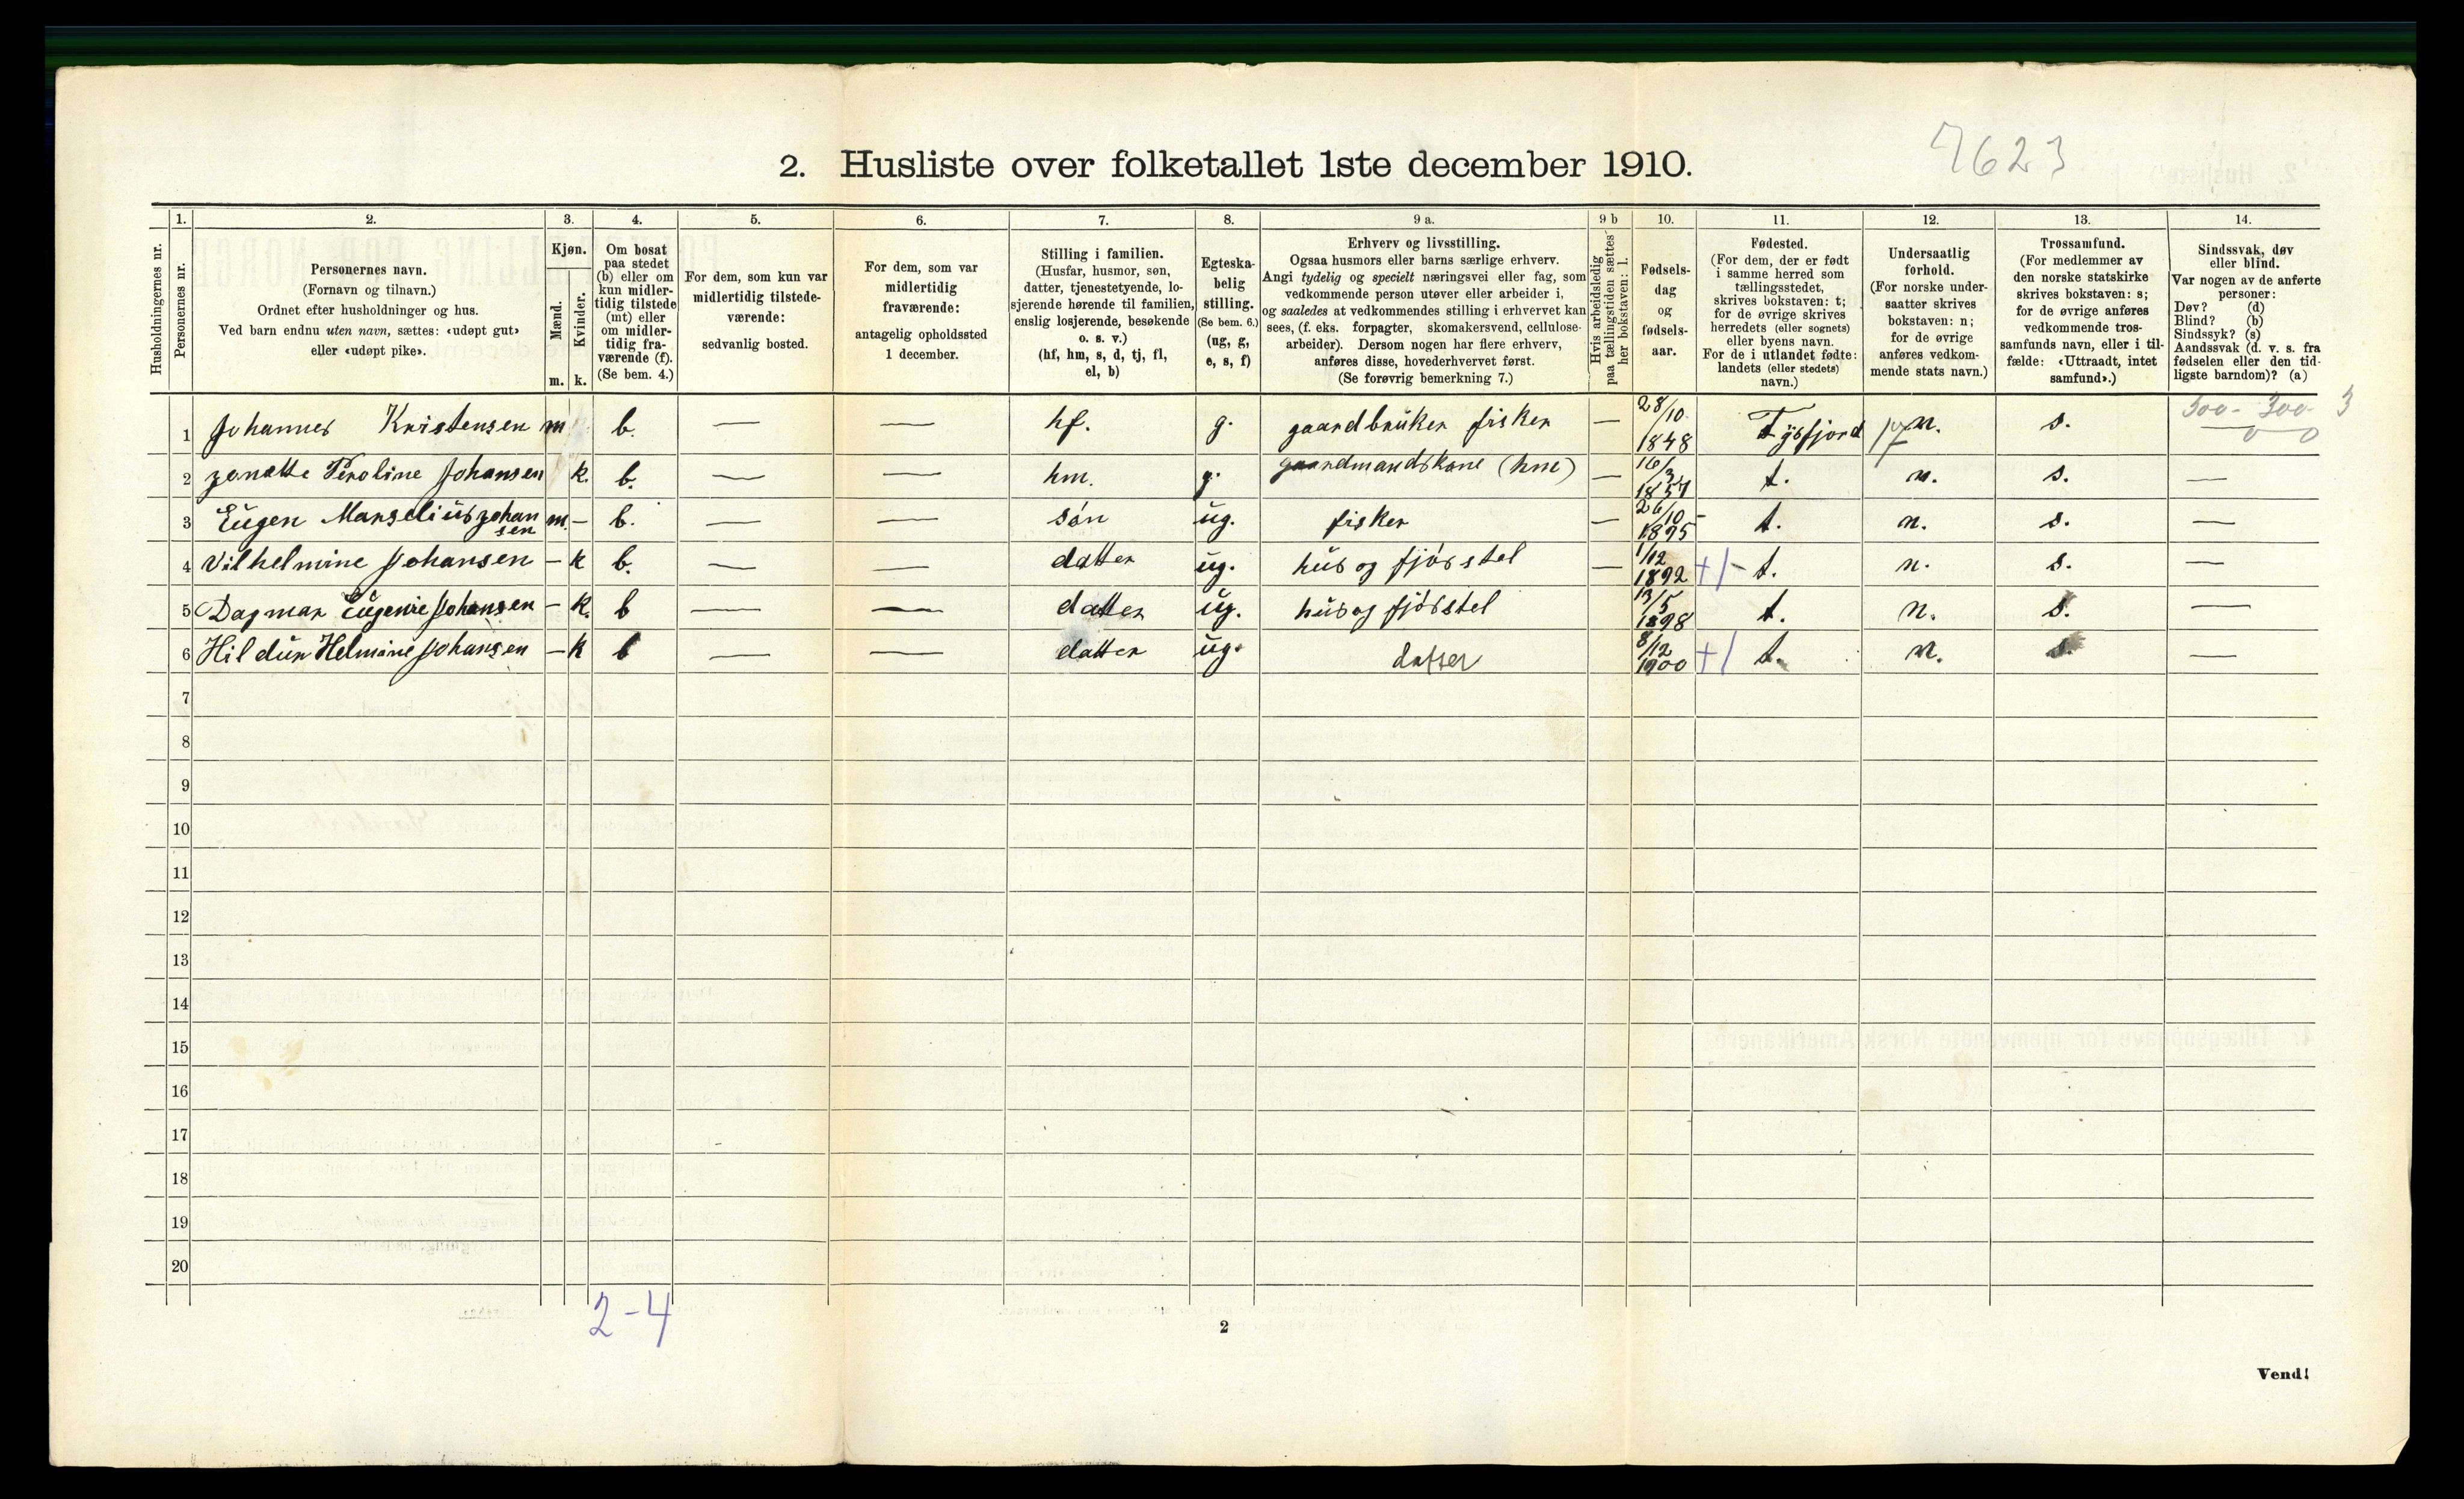 7623
2. Husliste over folketallet 1ste december 1910.
1. 2. 3. 4. 5. 6. 7. 8. 9 a. 9 b 10. 11. 12. 13. 14.
Husholdningernes nr.
Personernes nr.
Personernes navn.
(Fornavn og tilnavn.)
Ordnet efter husholdninger og hus.
Ved barn endnu uten navn, sættes: «udøpt gut»
eller «udøpt pike».
Kjøn.
Mænd.
Kvinder.
m. k.
Om bosat
paa stedet
(b) eller om
kun midler-
tidig tilstede
(mt) eller
om midler-
tidig fra-
værende (f).
(Se bem. 4.)
For dem, som kun var
midlertidig tilstede-
værende:
sedvanlig bosted.
For dem, som var
midlertidig
fraværende:
antagelig opholdssted
1 december.
Stilling i familien.
(Husfar, husmor, søn,
datter, tjenestetyende, lo-
sjerende hørende til familien,
enslig losjerende, besøkende
o. s. v.)
(hf, hm, s, d, tj, fl,
el, b)
Egteska-
belig
stilling.
(Se bem. 6.)
(ug, g,
e, s, f)
Erhverv og livsstilling.
Ogsaa husmors eller barns særlige erhverv.
Angi tydelig og specielt næringsvei eller fag, som
vedkommende person utøver eller arbeider i,
og saaledes at vedkommendes stilling i erhvervet kan
sees, (f. eks. forpagter, skomakersvend, cellulose-
arbeider). Dersom nogen har flere erhverv,
anføres disse, hovederhvervet først.
(Se forøvrig bemerkning 7.)
Hvis arbeidsledig
paa tællingstiden sættes
her bokstaven: l.
Fødsels-
dag
og
fødsels-
aar.
Fødested.
(For dem, der er født
i samme herred som
tællingsstedet,
skrives bokstaven: t;
for de øvrige skrives
herredets (eller sognets)
eller byens navn.
For de i utlandet fødte:
landets (eller stedets)
navn.)
Undersaatlig
forhold.
(For norske under-
saatter skrives
bokstaven: n;
for de øvrige
anføres vedkom-
mende stats navn.)
Trossamfund.
(For medlemmer av
den norske statskirke
skrives bokstaven: s;
for de øvrige anføres
vedkommende tros-
samfunds navn, eller i til-
fælde: «Uttraadt, intet
samfund».)
Sindssvak, døv
eller blind.
Var nogen av de anførte
personer:
Døv? (d)
Blind? (b)
Sindssyk? (s)
Aandssvak (d. v. s. fra
fødselen eller den tid-
ligste barndom)? (a)
300- 300- 3
0 0
1 Johannes Kristensen m b. — — hf. g. gaardbruker fisker — 28/10 1848 Tysfjord 17 n. s.
2 Zonette Peroline Johansen k. b. — — hm. g. gaardmandskone (hm) — 16/3 1857 t. n. s. —
3 Eugen Marselius Johansen m. - b. — — søn ug. fisker — 26/10 1895 - t. n. s. —
4 Vilhelmine Johansen - k b. — — datter ug. hus og fjøsstel — 1/12 1892 +1- t. n. s. —
5 Dagmar Eugenie Johansen - k. b — — datter ug. hus og fjøsstel 13/5 1898 t. n. s. —
6 Hildur Helmine Johansen - k b — — datter ug. datter 8/12 1900 +1 t. n. s. —
7
8
9
10
11
12
13
14
15
16
17
18
19
20
2-4
2
Vend!